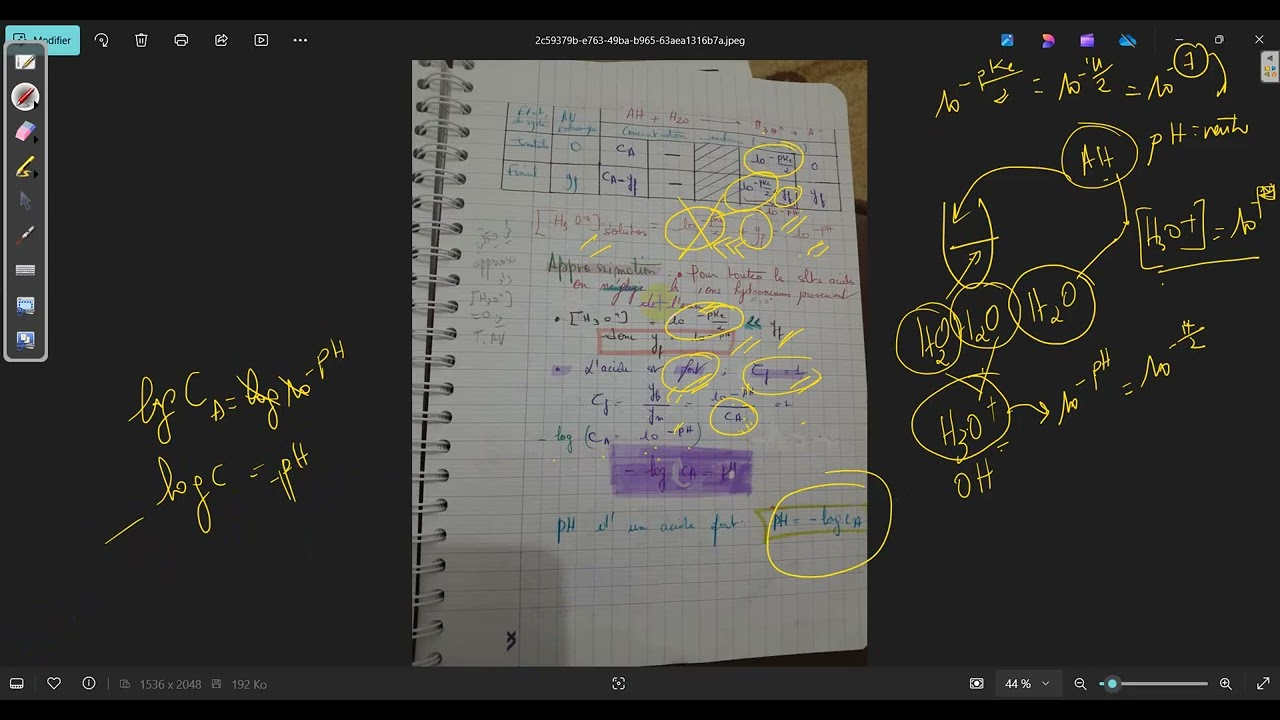 Modifier
2c59379b-e763-49ba-b965-63aea1316b7a.jpeg
AH + H2O → H3O+ + A-
Initial 0 CA — 10^-pKe/2 0
Final yf CA-yf — 10^-pKe/2 yf yf
10^-pH
[H3O+] solution = + yf = 10^-pH
Approximation • Pour toutes le slts acides
on néglige ions hydroniums provenant
de l'eau
• [H3O+] = 10^-pKe/2 << yf
donc yf 10^-pH
• L'acide est fort, Cf = 1
Cf = yf/ym = 10^-pH/CA = 1
- log (CA = 10^-pH)
- log CA = pH
pH d'un acide fort pH = -log CA
log CA = log 10^-pH
- log C = -pH
10^-pKe/2 = 10^-14/2 = 10^-7
AH
pH = neutre
[H3O+] = 10
H2O H2O H2O
H3O+ → 10^-pH = 10^-14/2
OH-
1536 x 2048 192 Ko
44 %